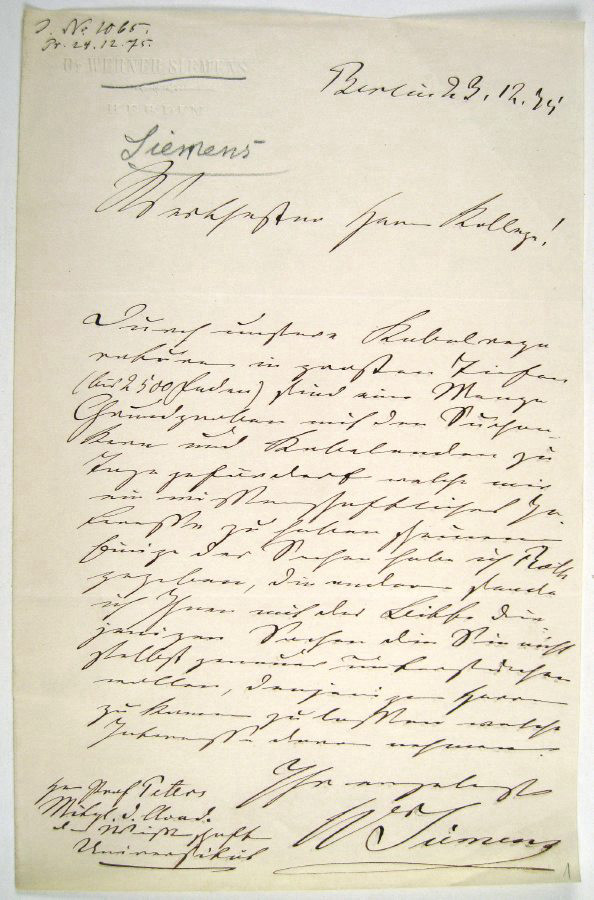 J. No. 1065.
Pr. 24.12.75.
Dr. WERNER SIEMENS
BERLIN
Berlin 23.12.75
Siemens
Werthester Herr Kollege!
Durch unsere Kabelrepa
raturen in großen Tiefen
(bis 2500 Faden) sind eine Menge
Grundproben mit den Suchan-
kern und Kabelenden zu
Tage gefördert welche mir
ein wissenschaftliches In-
teresse zu haben scheinen
Einige der Sachen habe ich Roth
gegeben, die andern sende
ich Ihnen mit der Bitte die
jenigen Sachen die Sie nicht
selbst genauer untersuchen
wollen, denjenigen Herrn
zu kommen zu lassen welche
Interesse daran nehmen.
Ihr ergebenster
Dr W Siemens
Hr Prof Peters
Mitgl. d. Acad.
d. Wissenschaft
Universität
1